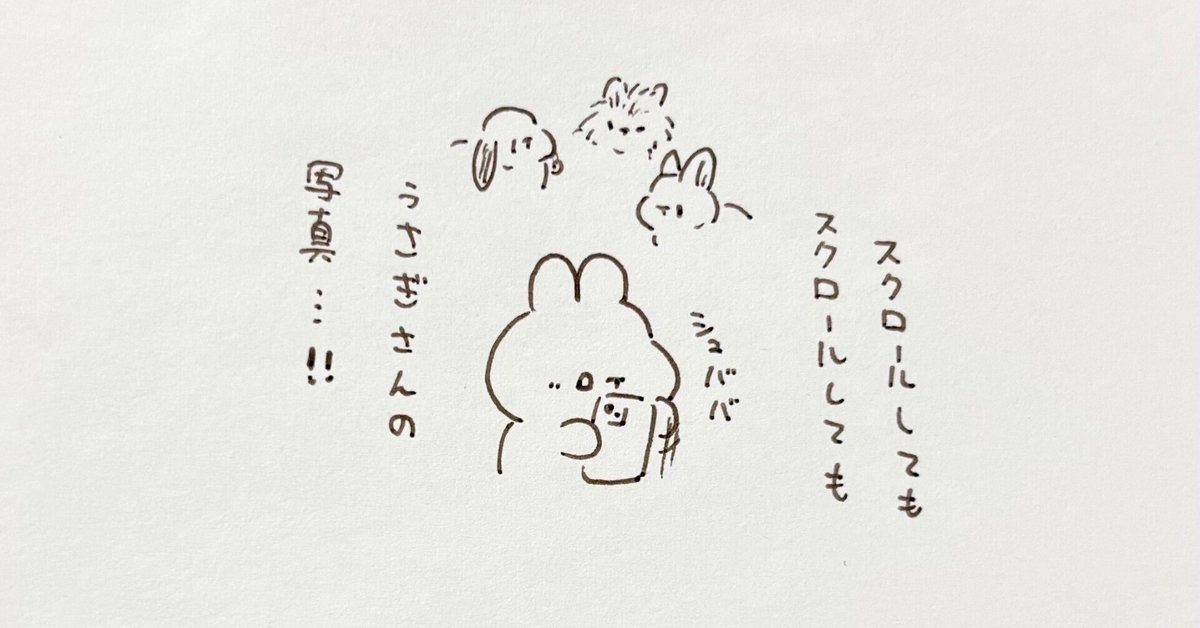 スクロールしても
スクロールしても
シュババ
うさぎさんの
写真…!!